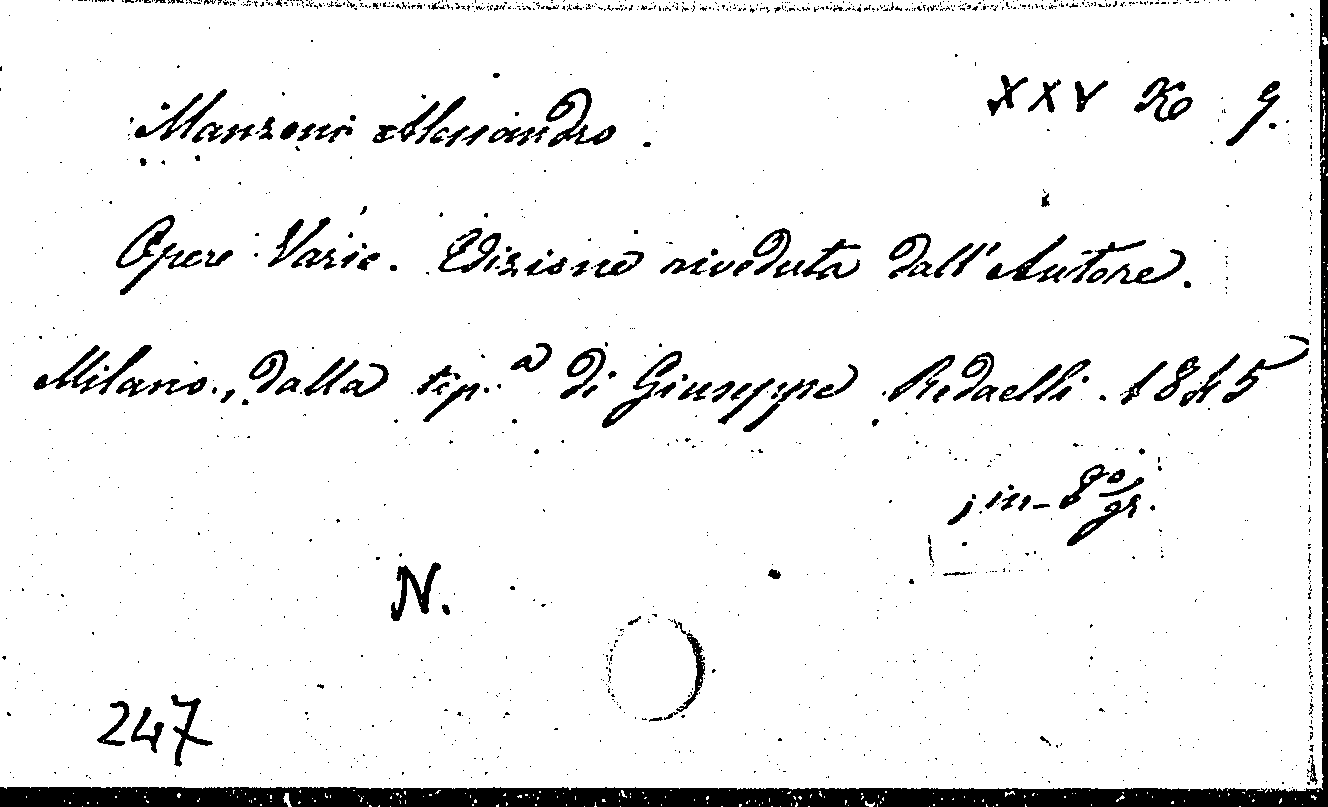 XXV K 9.
Manzoni Alessandro.
Opere Varie. Edizione riveduta dall'Autore.
Milano, dalla tip.a di Giuseppe Redaelli. 1845
; in-8o gr.
N.
247